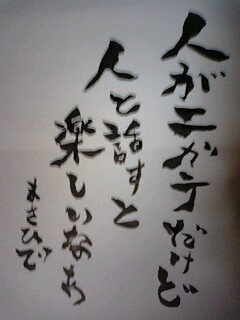 人がニガテだけど
人と話すと
楽しいなあ
まさひで